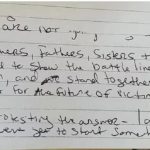 are not
mers, Fathers, Sisters +
d to show the battle line
, and stand together
for the future of victim
rotesting the answer -
were yet to start Some